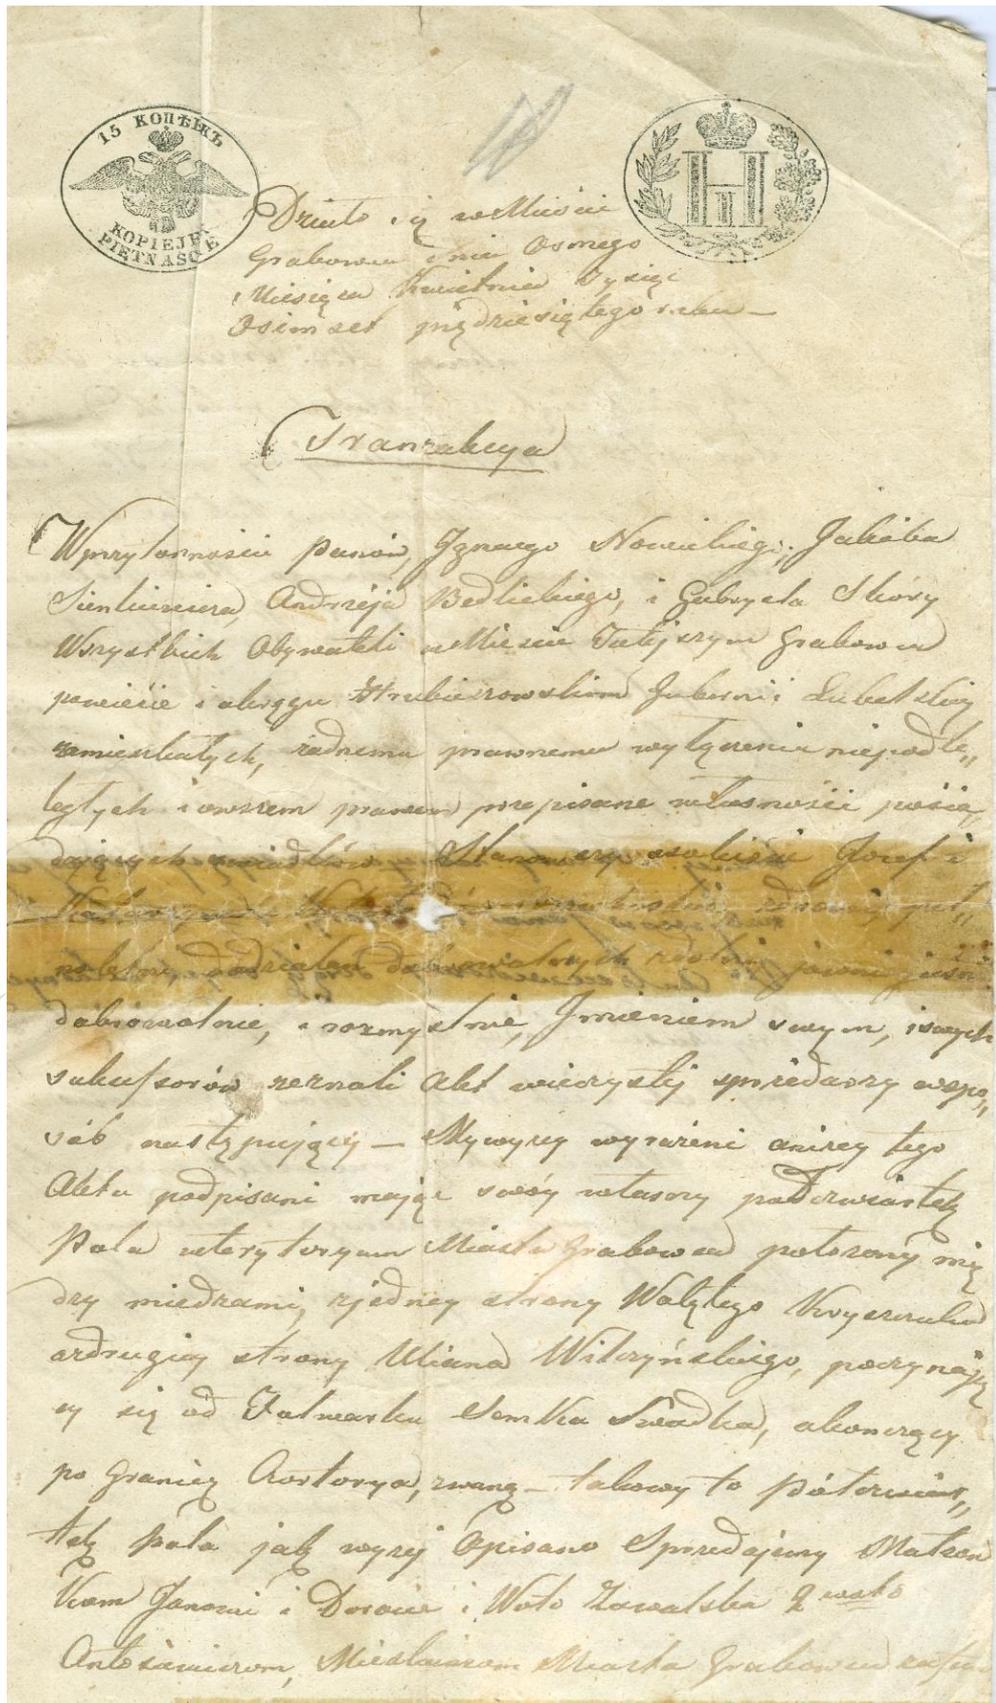 15 КОПѢЕКЪ
KOPIEJEK
PIETNAŚCIE
Н I
Działo się w Mieście
Grabowcu dnia Osmego
Miesiąca Kwietnia Tysiąc
Osimset piędziesiątego roku —
Tranzakcya
W przytomności panów, Jgnacego Nowickiego, Jakóba
Sienkiewicza, Andrzéja Bedlickiego, i Gabryela Skóry
Wszystkich Obywateli w Mieście Tutejszym Grabowcu
powiecie i okręgu Hrubieszowskim Gubernii Lubelskiej
zamieszkałych, żadnemu prawnemu wyłączeniu niepodle„
głych i owszem prawem przepisane własności posia„
dających świadków Stanowszy osobiście Józef i
dobrowolnie, i rozmyślnie, Jmieniem swym, i swych
sukcessorów zeznali Akt wieczystej sprzedaży w spo„
sób następujący — My wyżej wyrażeni a niżej tego
Aktu podpisani mając swóy własny półćwiartek
Pola w terytoryum Miasta Grabowca położony mię
dzy miedzami, z jedney strony Walętego
a z drugiey strony Uliana Wilczyńskiego, poczynają
cy się od Folwarku Semka Swadka, a kończący
po Granicę zwaną — takowy to Półćwiar„
tek Pola jak wyżej Opisano Sprzedajemy Małżon
kom Janowi i Dorocie i Woto Zawalska 2 woto
Antosiewiczom, Mieszkańcom Miasta Grabowca